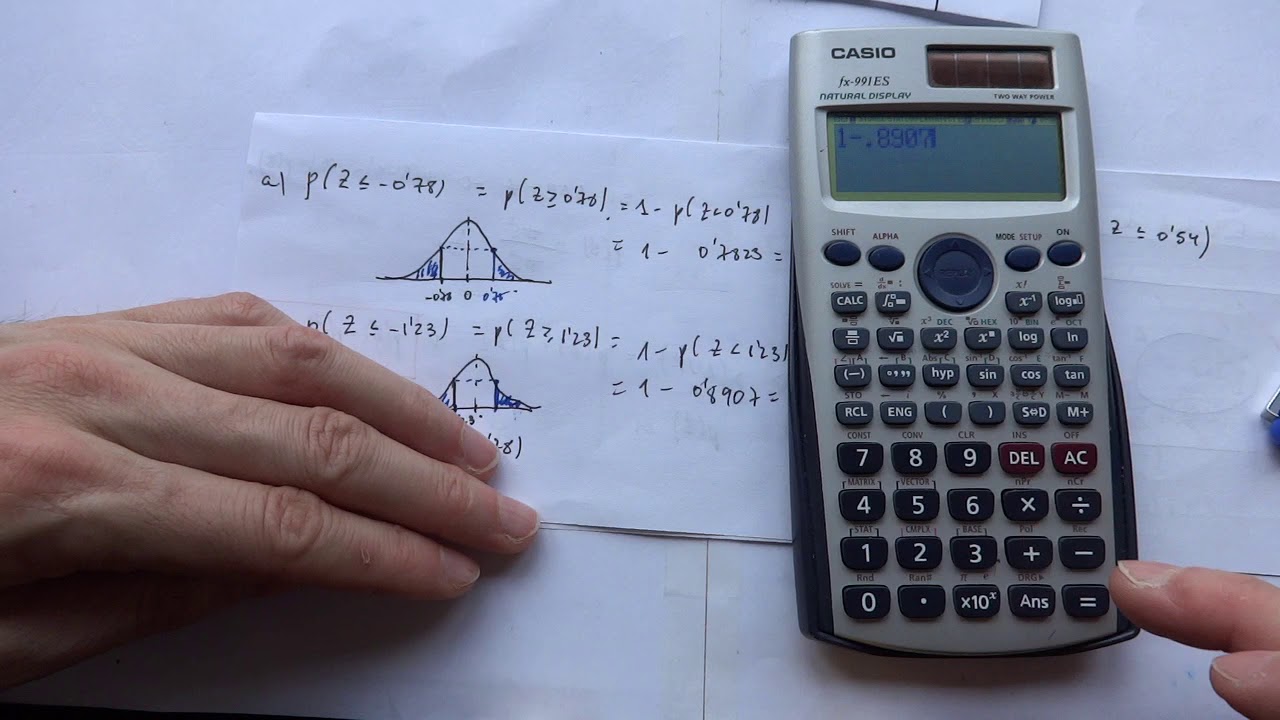 a) p(Z ≤ -0'78) = p(Z ≥ 0'78) = 1 - p(Z < 0'78)
= 1 - 0'7823 =
-0'78 0 0'78
p(Z ≤ -1'23) = p(Z ≥ 1'23) = 1 - p(Z < 1'23)
= 1 - 0'8907 =
Z ≤ 0'54)
CASIO
fx-991ES
NATURAL DISPLAY
TWO WAY POWER
1-.8907
SHIFT ALPHA MODE SETUP ON
REPLAY
SOLVE = d/dx : x!
CALC ∫ x⁻¹ log
x³ DEC ³√ HEX 10ˣ BIN eˣ OCT
√ x² log ln
∠ A B Abs C sin⁻¹ D cos⁻¹ E tan⁻¹ F
(−) °’” hyp sin cos tan
STO M− M
RCL ENG ( ) S⇔D M+
CONST CONV CLR INS OFF
7 8 9 DEL AC
MATRIX VECTOR nPr nCr
4 5 6 × ÷
STAT CMPLX BASE Pol Rec
1 2 3 + −
Rnd Ran# π e DRG▸
0 . ×10ˣ Ans =